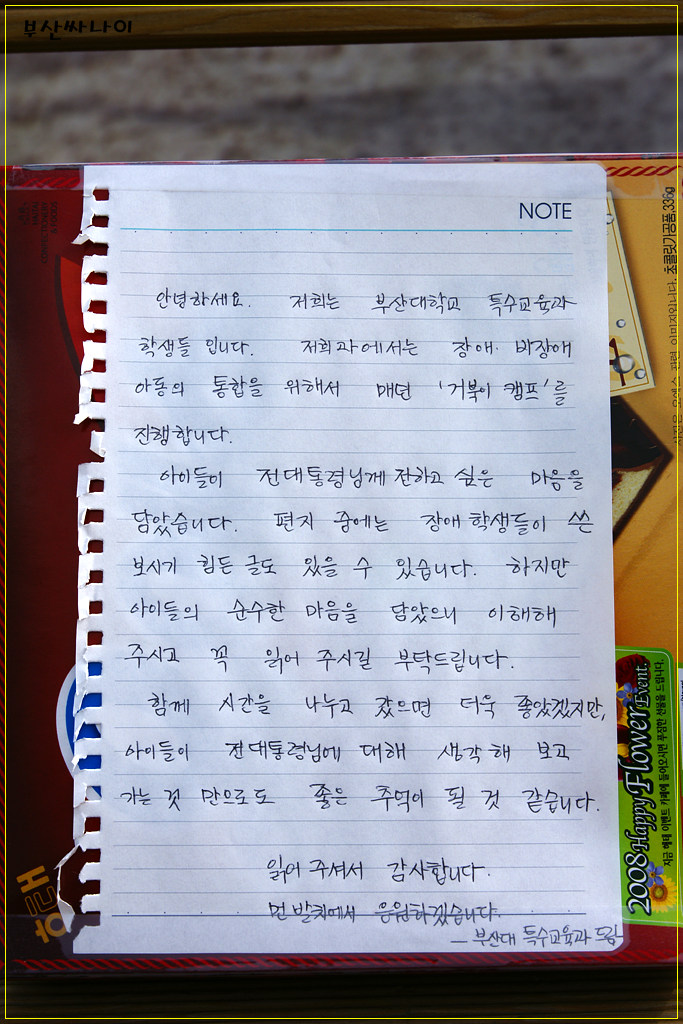 부산싸나이
NOTE
안녕하세요. 저희는 부산대학교 특수교육과
학생들 입니다. 저희과에서는 장애·비장애
아동의 통합을 위해서 매년 '거북이 캠프'를
진행합니다.
아이들이 전대통령님께 전하고 싶은 마음을
담았습니다. 편지 중에는 장애 학생들이 쓴
보시기 힘든 글도 있을 수 있습니다. 하지만
아이들의 순수한 마음을 담았으니 이해해
주시고 꼭 읽어 주시길 부탁드립니다.
함께 시간을 나누고 갔으면 더욱 좋았겠지만,
아이들이 전대통령님에 대해 생각 해 보고
가는 것 만으로도 좋은 추억이 될 것 같습니다.
읽어 주셔서 감사합니다.
먼 발치에서 응원하겠습니다.
— 부산대 특수교육과 드림
초콜릿가공품, 336g
관련 이미지입니다.
2008 Happy Flower Event
지금 해태 이벤트 카페에 들어오시면 푸짐한 선물을 드립니다.